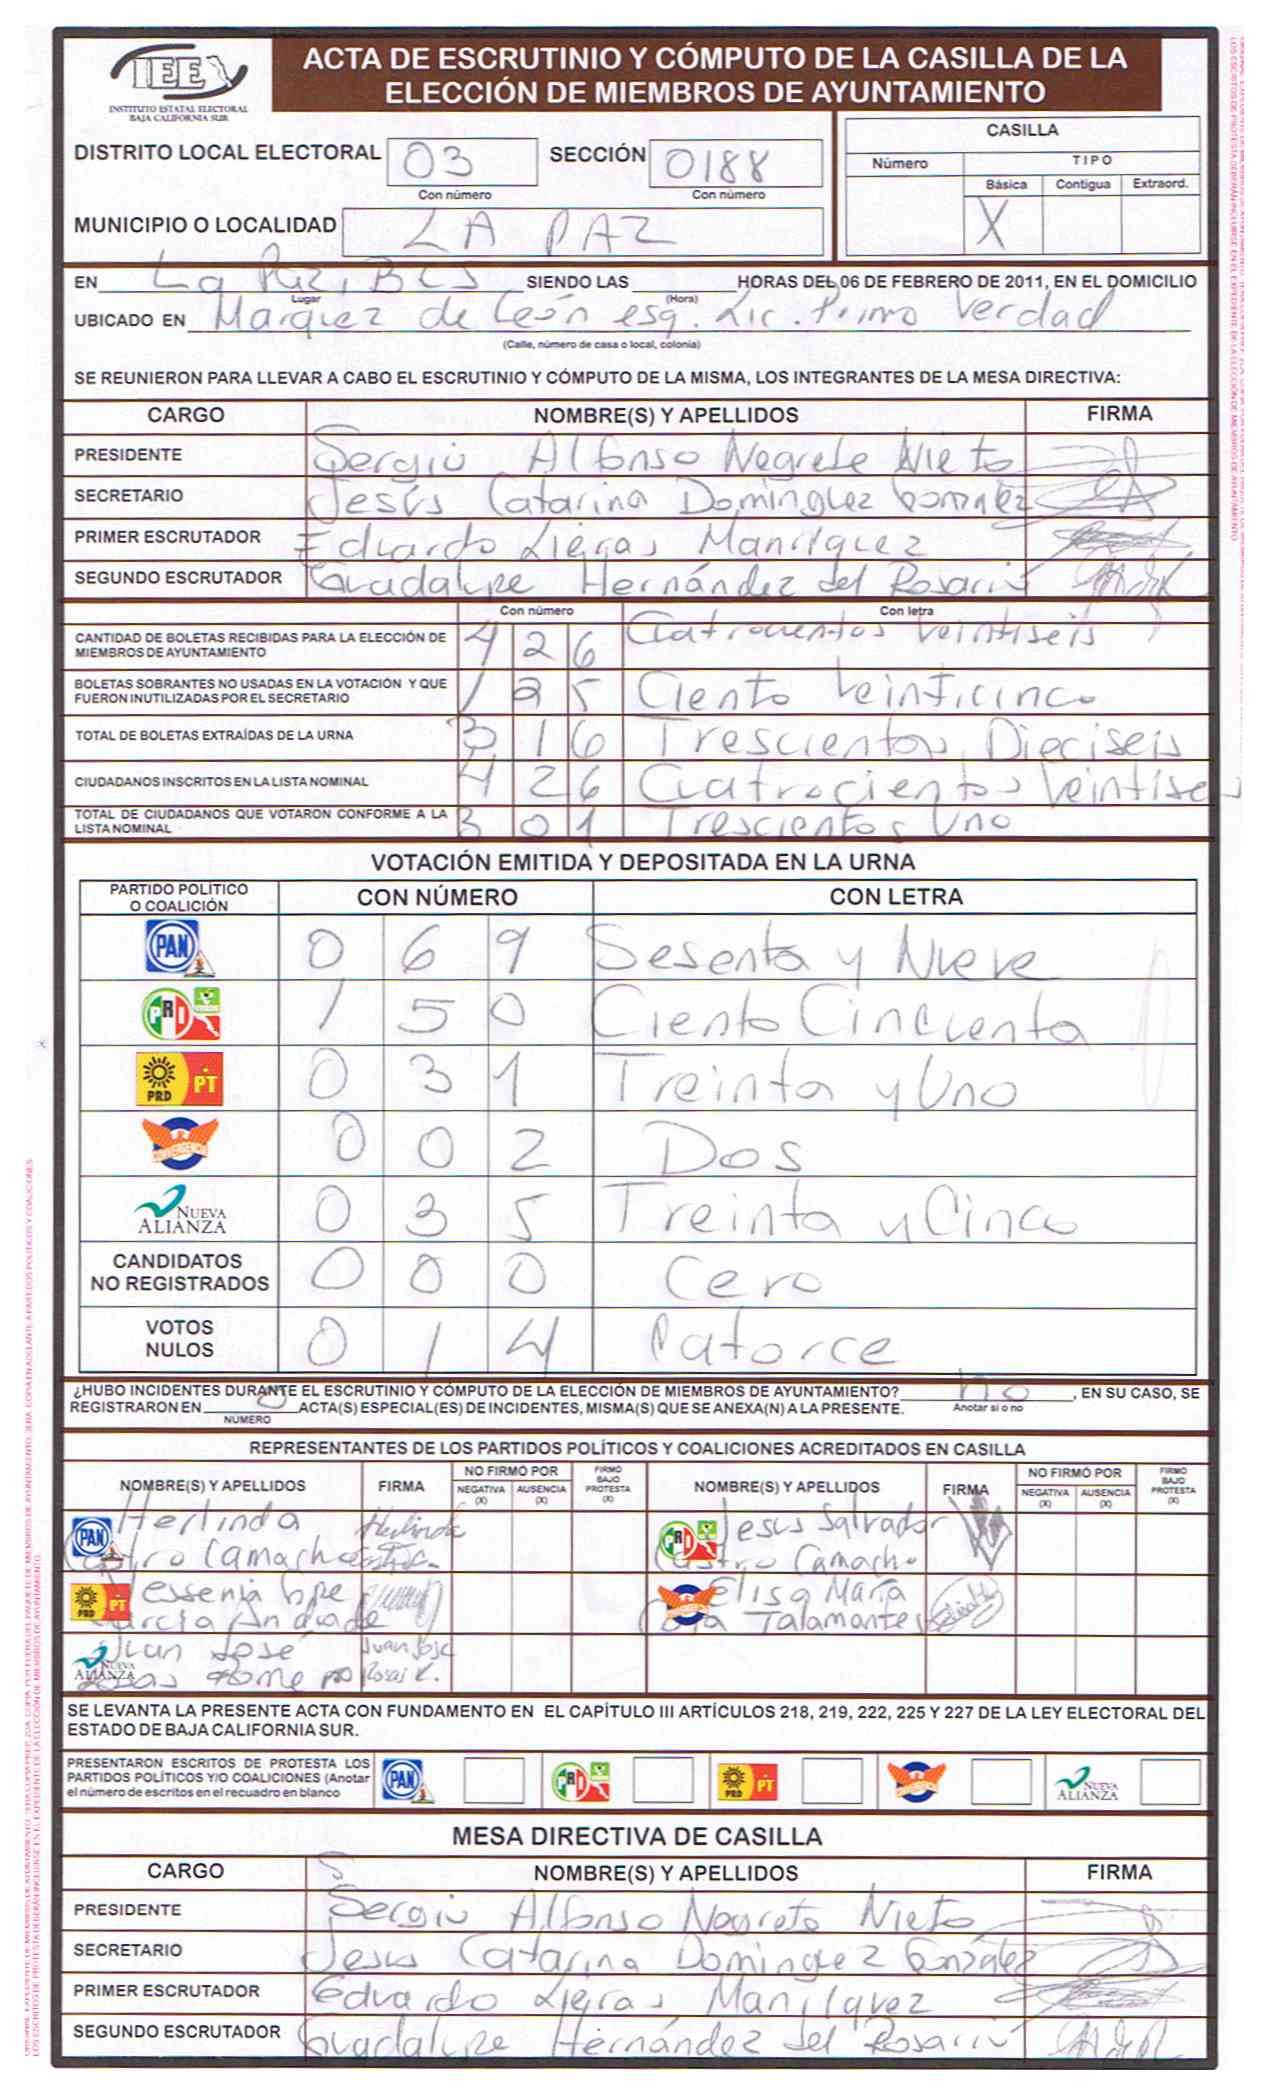 IEE
INSTITUTO ESTATAL ELECTORAL
BAJA CALIFORNIA SUR
ACTA DE ESCRUTINIO Y CÓMPUTO DE LA CASILLA DE LA
ELECCIÓN DE MIEMBROS DE AYUNTAMIENTO
DISTRITO LOCAL ELECTORAL 03 SECCIÓN 0188
Con número Con número
MUNICIPIO O LOCALIDAD LA PAZ
CASILLA
Número TIPO
Básica Contigua Extraord.
X
EN La Paz, BCS SIENDO LAS HORAS DEL 06 DE FEBRERO DE 2011, EN EL DOMICILIO
Lugar (Hora)
UBICADO EN Marquez de León esq. Lic. Primo Verdad
(Calle, número de casa o local, colonia)
SE REUNIERON PARA LLEVAR A CABO EL ESCRUTINIO Y CÓMPUTO DE LA MISMA, LOS INTEGRANTES DE LA MESA DIRECTIVA:
CARGO NOMBRE(S) Y APELLIDOS FIRMA
PRESIDENTE Sergio Alfonso Negrete Nieto
SECRETARIO Jesús Catarina Dominguez
PRIMER ESCRUTADOR Eduardo Manríquez
SEGUNDO ESCRUTADOR Guadalupe Hernández del Rosario
Con número Con letra
CANTIDAD DE BOLETAS RECIBIDAS PARA LA ELECCIÓN DE
MIEMBROS DE AYUNTAMIENTO 4 2 6 Cuatrocientos Veintiseis
BOLETAS SOBRANTES NO USADAS EN LA VOTACIÓN Y QUE
FUERON INUTILIZADAS POR EL SECRETARIO 1 2 5 Ciento Veinticinco
TOTAL DE BOLETAS EXTRAÍDAS DE LA URNA 3 1 6 Trescientos Dieciseis
CIUDADANOS INSCRITOS EN LA LISTA NOMINAL 4 2 6 Cuatrocientos Veintiseis
TOTAL DE CIUDADANOS QUE VOTARON CONFORME A LA
LISTA NOMINAL 3 0 1 Trescientos Uno
VOTACIÓN EMITIDA Y DEPOSITADA EN LA URNA
PARTIDO POLÍTICO
O COALICIÓN CON NÚMERO CON LETRA
PAN 0 6 9 Sesenta y Nueve
PRI 1 5 0 Ciento Cincuenta
PRD PT 0 3 1 Treinta y Uno
CONVERGENCIA 0 0 2 Dos
NUEVA ALIANZA 0 3 5 Treinta y Cinco
CANDIDATOS
NO REGISTRADOS 0 0 0 Cero
VOTOS
NULOS 0 1 4 Catorce
¿HUBO INCIDENTES DURANTE EL ESCRUTINIO Y CÓMPUTO DE LA ELECCIÓN DE MIEMBROS DE AYUNTAMIENTO? no, EN SU CASO, SE
REGISTRARON EN 0 ACTA(S) ESPECIAL(ES) DE INCIDENTES, MISMA(S) QUE SE ANEXA(N) A LA PRESENTE. Anotar si o no
NÚMERO
REPRESENTANTES DE LOS PARTIDOS POLÍTICOS Y COALICIONES ACREDITADOS EN CASILLA
NOMBRE(S) Y APELLIDOS FIRMA NO FIRMÓ POR NEGATIVA (X) AUSENCIA (X) FIRMÓ BAJO PROTESTA (X) NOMBRE(S) Y APELLIDOS FIRMA NO FIRMÓ POR NEGATIVA (X) AUSENCIA (X) FIRMÓ BAJO PROTESTA (X)
PAN Herlinda Herlinda PRI Jesus Salvador
Castro Camacho Castro Camacho
PRD PT Elisa María
García Andrade Cota Talamontes
NUEVA ALIANZA Juan José Juan José
Rosas Rosas R.
SE LEVANTA LA PRESENTE ACTA CON FUNDAMENTO EN EL CAPÍTULO III ARTÍCULOS 218, 219, 222, 225 Y 227 DE LA LEY ELECTORAL DEL
ESTADO DE BAJA CALIFORNIA SUR.
PRESENTARON ESCRITOS DE PROTESTA LOS
PARTIDOS POLÍTICOS Y/O COALICIONES (Anotar
el número de escritos en el recuadro en blanco
PAN PRI PRD PT CONVERGENCIA NUEVA ALIANZA
MESA DIRECTIVA DE CASILLA
CARGO NOMBRE(S) Y APELLIDOS FIRMA
PRESIDENTE Sergio Alfonso Negrete Nieto
SECRETARIO Jesus Catarina Dominguez González
PRIMER ESCRUTADOR Eduardo Manríquez
SEGUNDO ESCRUTADOR Guadalupe Hernández del Rosario